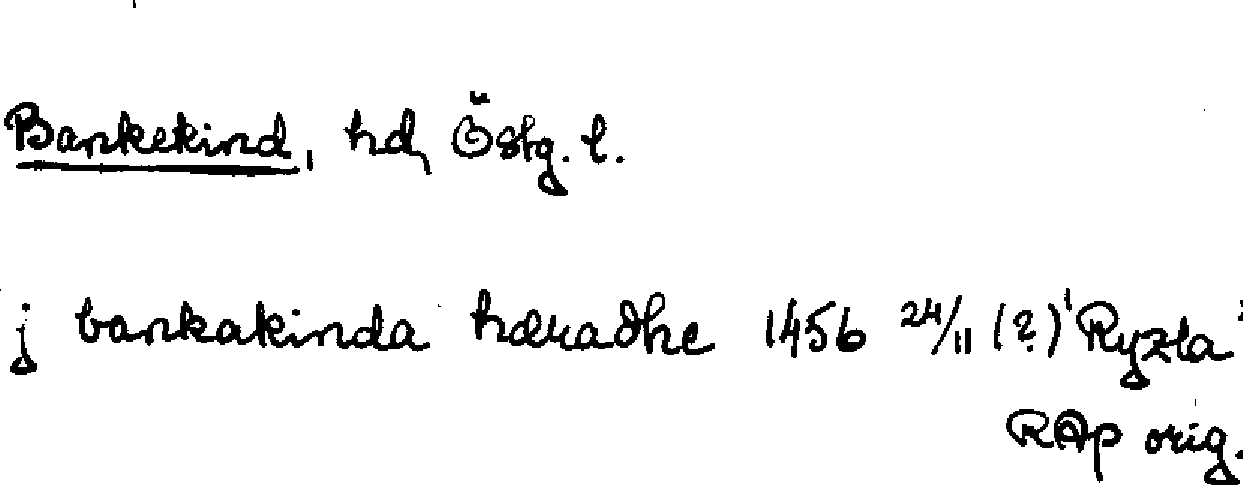 Bankekind, hd, Östg. l.
j bankakinda hæradhe 1456 24/11 (?) 'Ryzta'
RAp orig.